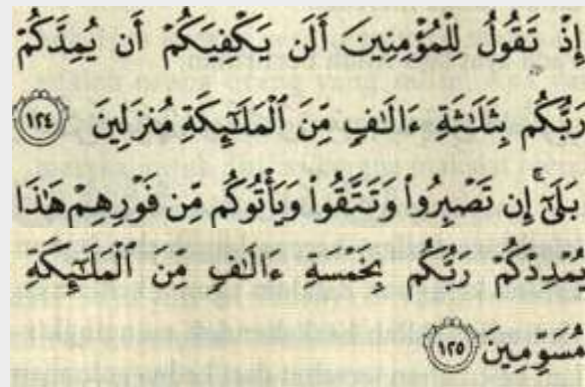 إِذْ تَقُولُ لِلْمُؤْمِنِينَ أَلَن يَكْفِيَكُمْ أَن يُمِدَّكُمْ
رَبُّكُم بِثَلَـٰثَةِ ءَالَـٰفٍ مِّنَ ٱلْمَلَـٰٓئِكَةِ مُنزَلِينَ ١٢٤
بَلَىٰٓ ۚ إِن تَصْبِرُوا۟ وَتَتَّقُوا۟ وَيَأْتُوكُم مِّن فَوْرِهِمْ هَـٰذَا
يُمْدِدْكُمْ رَبُّكُم بِخَمْسَةِ ءَالَـٰفٍ مِّنَ ٱلْمَلَـٰٓئِكَةِ
مُسَوِّمِينَ ١٢٥